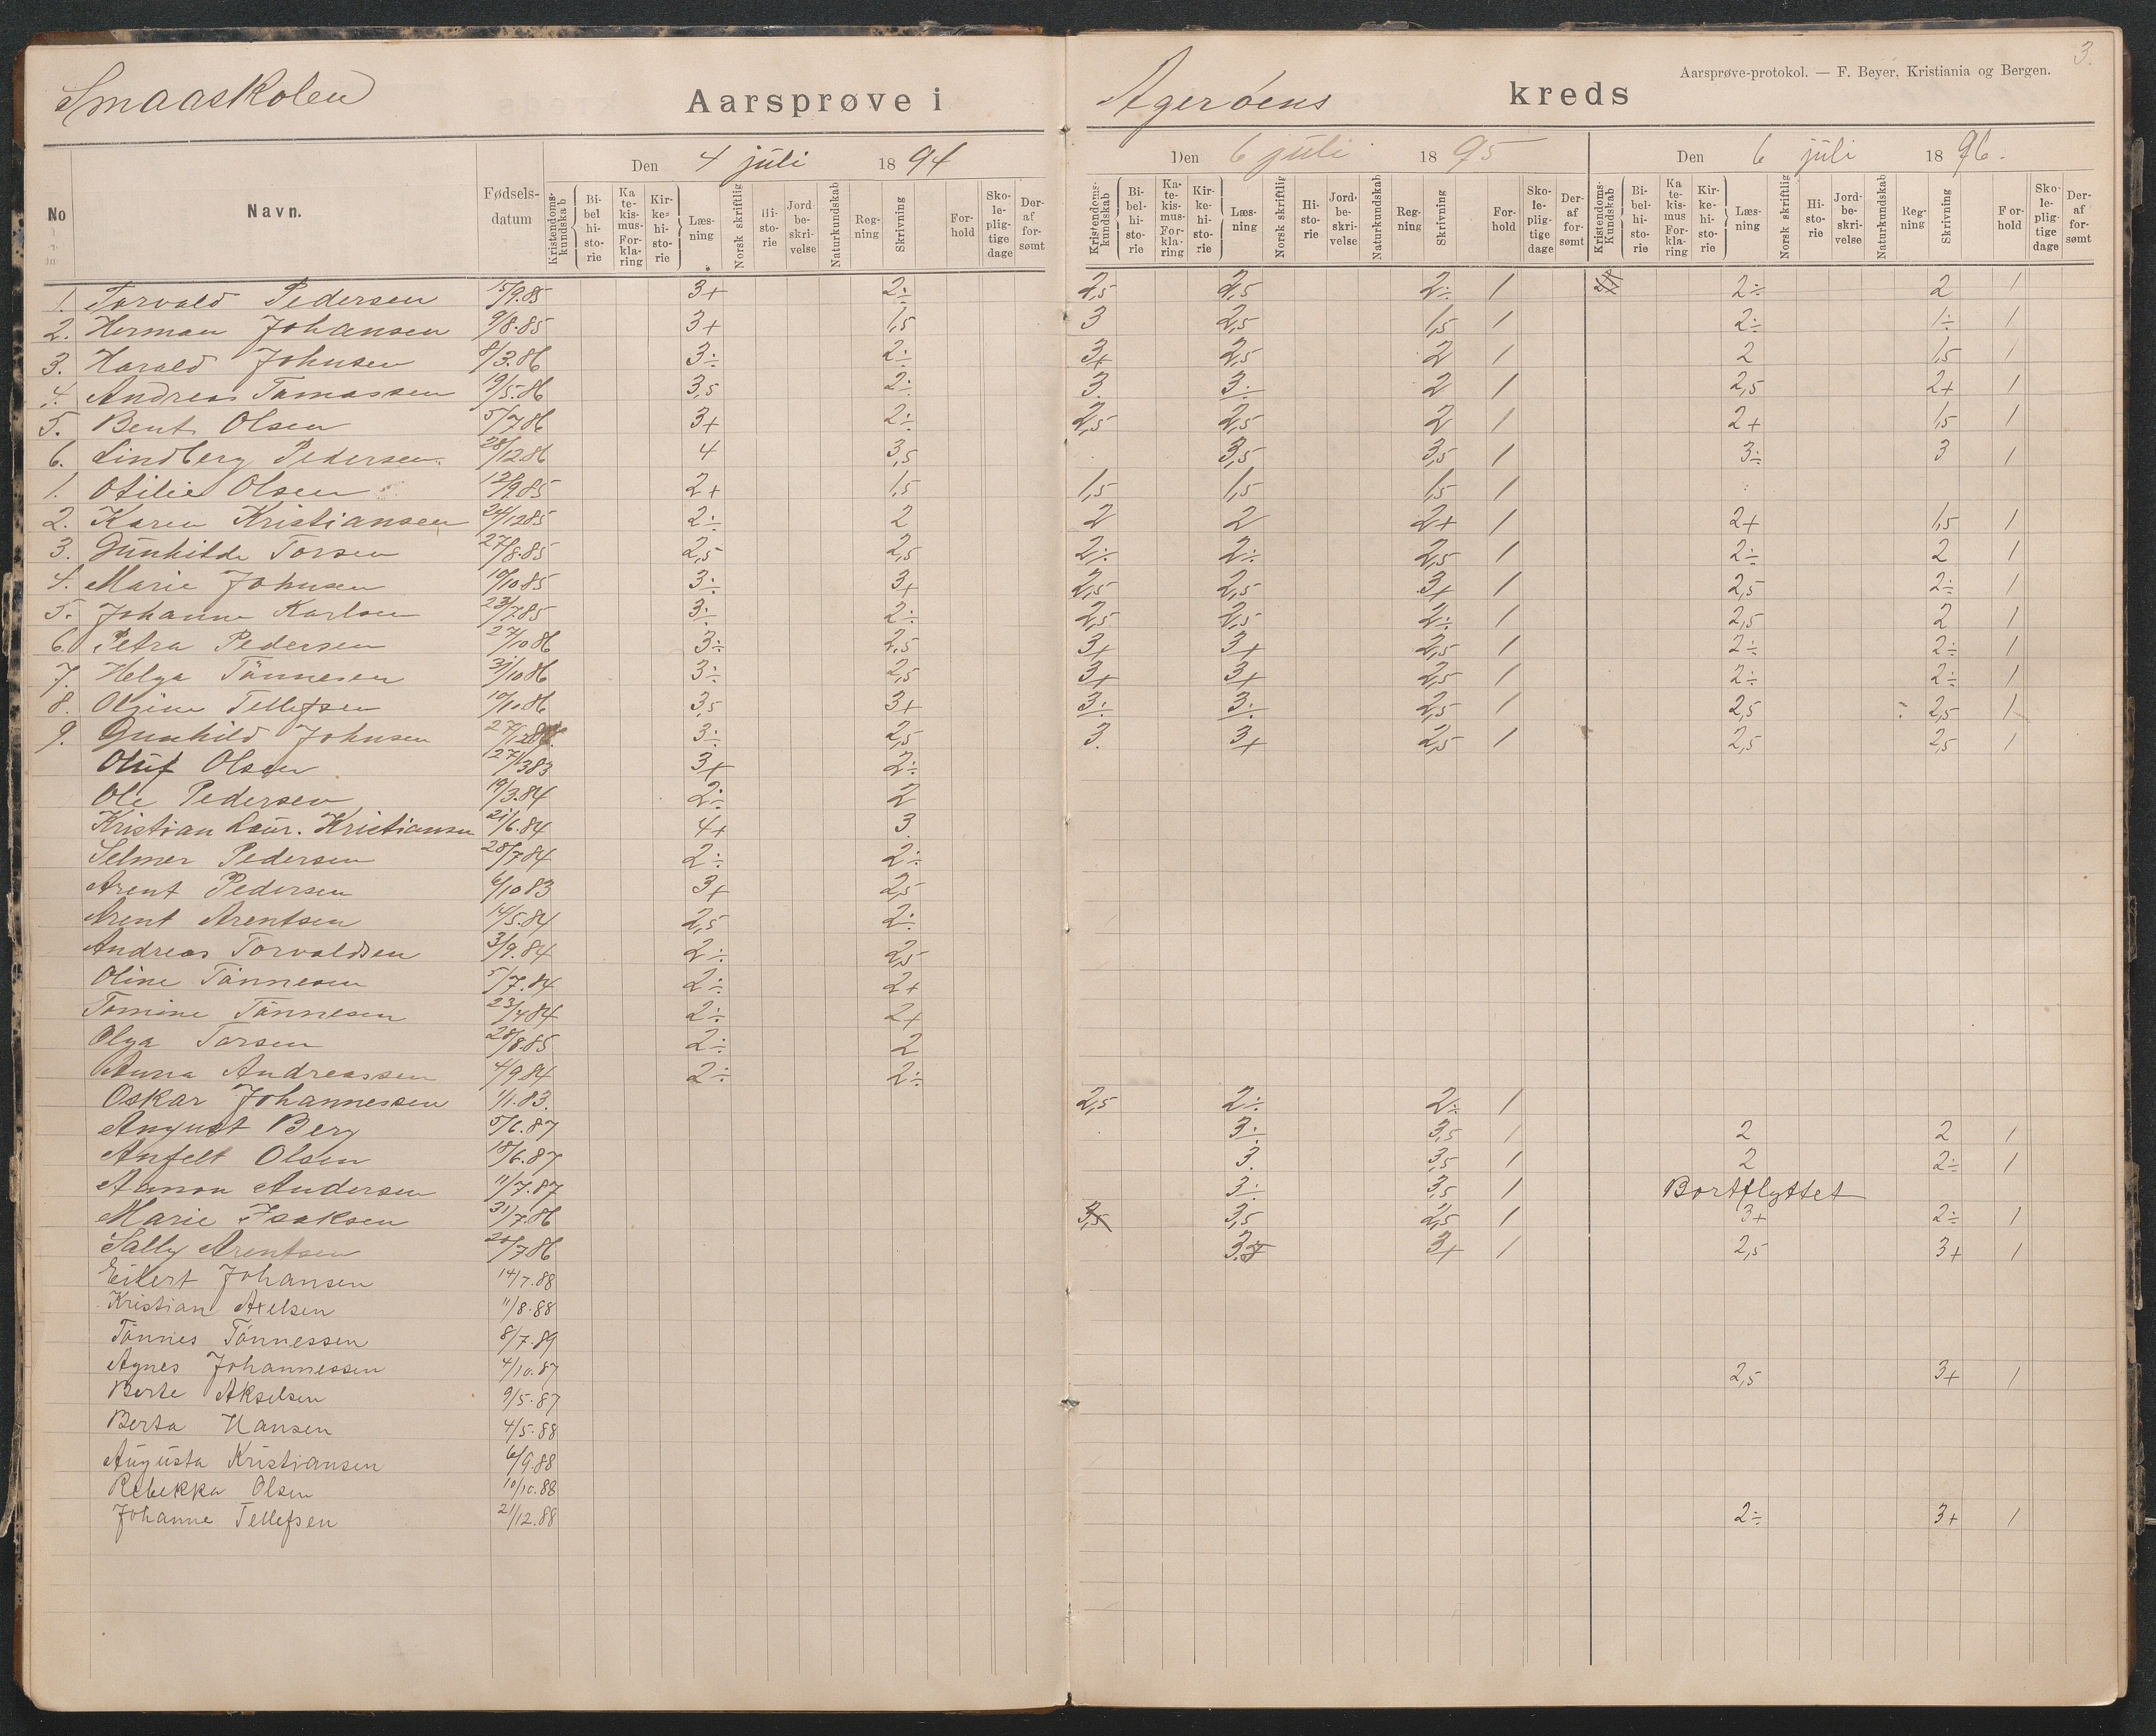 3.
Aarsprøve-protokol. — F. Beyer, Kristiania og Bergen.
Smaaskolen Aarsprøve i Agerøens kreds
Den 4 juli 1894 Den 6 juli 1895 Den 6 juli 1896.
No Navn. Fødselsdatum Kristendomskundskab Bibelhistorie Katekismus-Forklaring Kirkehistorie Læsning Norsk skriftlig Historie Jordbeskrivelse Naturkundskab Regning Skrivning Forhold Skolepligtige dage Deraf forsømt Kristendomskundskab Bibelhistorie Katekismus-Forklaring Kirkehistorie Læsning Norsk skriftlig Historie Jordbeskrivelse Naturkundskab Regning Skrivning Forhold Skolepligtige dage Deraf forsømt Kristendoms-Kundskab Bibelhistorie Katekismus Forklaring Kirkehistorie Læsning Norsk skriftlig Historie Jordbeskrivelse Naturkundskab Regning Skrivning Forhold Skolepligtige dage Deraf forsømt
1. Torvald Pedersen 5/9.85 3+ 2÷ 2,5 2,5 2÷ 1 2÷ 2 1
2. Herman Johansen 9/8.85 3+ 1,5 3 2,5 1,5 1 2÷ 1÷ 1
3. Harald Johnsen 8/3.86 3÷ 2÷ 3+ 2,5 2 1 2 1,5 1
4. Andreas Tomassen 19/5.86 3,5 2÷ 3. 3÷ 2 1 2,5 2+ 1
5. Bent Olsen 5/7.86 3+ 2÷ 2,5 2,5 2 1 2+ 1,5 1
6. Lindberg Pedersen. 28/12.86 4 3,5 3,5 3,5 1 3÷ 3 1
1. Otilie Olsen 12/9.85 2+ 1,5 1,5 1,5 1,5 1
2. Karen Kristiansen 24/12.85 2÷ 2 2 2 2+ 1 2+ 1,5 1
3. Gunhilde Torsen 27/8.85 2,5 2,5 2÷ 2÷ 2,5 1 2÷ 2 1
4. Marie Johnsen 10/10.85 3÷ 3+ 2,5 2,5 3+ 1 2,5 2÷ 1
5. Johanne Karlsen 23/7.85 3÷ 2÷ 2,5 2,5 2÷ 1 2,5 2 1
6. Petra Pedersen 27/10.86 3÷ 2,5 3+ 3+ 2,5 1 2÷ 2÷ 1
7. Helga Tönnesen 31/10.86 3÷ 2,5 3+ 3+ 2,5 1 2÷ 2÷ 1
8. Olgine Tellefsen 10/10.86 3,5 3+ 3÷ 3÷ 2,5 1 2,5 2,5 1
9. Gunhild Johnsen 27/12.86 3÷ 2,5 3. 3+ 2,5 1 2,5 2,5 1
Oluf Olsen 3+ 2÷
Ole Pedersen 19/3.84 2÷ 2
Kristian Laur. Kristiansen 21/6.84 4+ 3.
Selmer Pedersen 28/7.84 2÷ 2÷
Arent Pedersen 6/10 83 3+ 2,5
Arent Arentsen 14/5.84 2,5 2÷
Andreas Torvaldsen 3/9.84 2÷ 2,5
Oline Tönnesen 5/7.84 2÷ 2+
Tomine Tönnesen 23/4.84 2÷ 2+
Olga Torsen 28/8.85 2÷ 2
Anna Andreassen 4/9.84 2÷ 2÷
Oskar Johannessen 1/1.83. 2,5 2÷ 2÷ 1
August Berg 5/6.87 3÷ 3,5 1 2 2 1
Anfelt Olsen 18/6.87 3. 3,5 1 2 2÷ 1
Aanon Andersen 11/7.87 3÷ 3,5 1 Bortflyttet
Marie Isaksen 31/7.86 3,5 3,5 2,5 1 3+ 2÷ 1
Sally Arentsen 20/7.86 3+ 1 2,5 3+ 1
Eilert Johansen 14/7.88
Kristian Axelsen 11/8.88
Tönnes Tönnessen 8/7.89
Agnes Johannessen 4/10.87 2,5 3+ 1
Berte Akselsen 9/5.87
Berta Hansen 4/5.88
Augusta Kristiansen 6/9.88
Rebekka Olsen 10/10.88
Johanne Tellefsen 21/12.88 2÷ 3+ 1